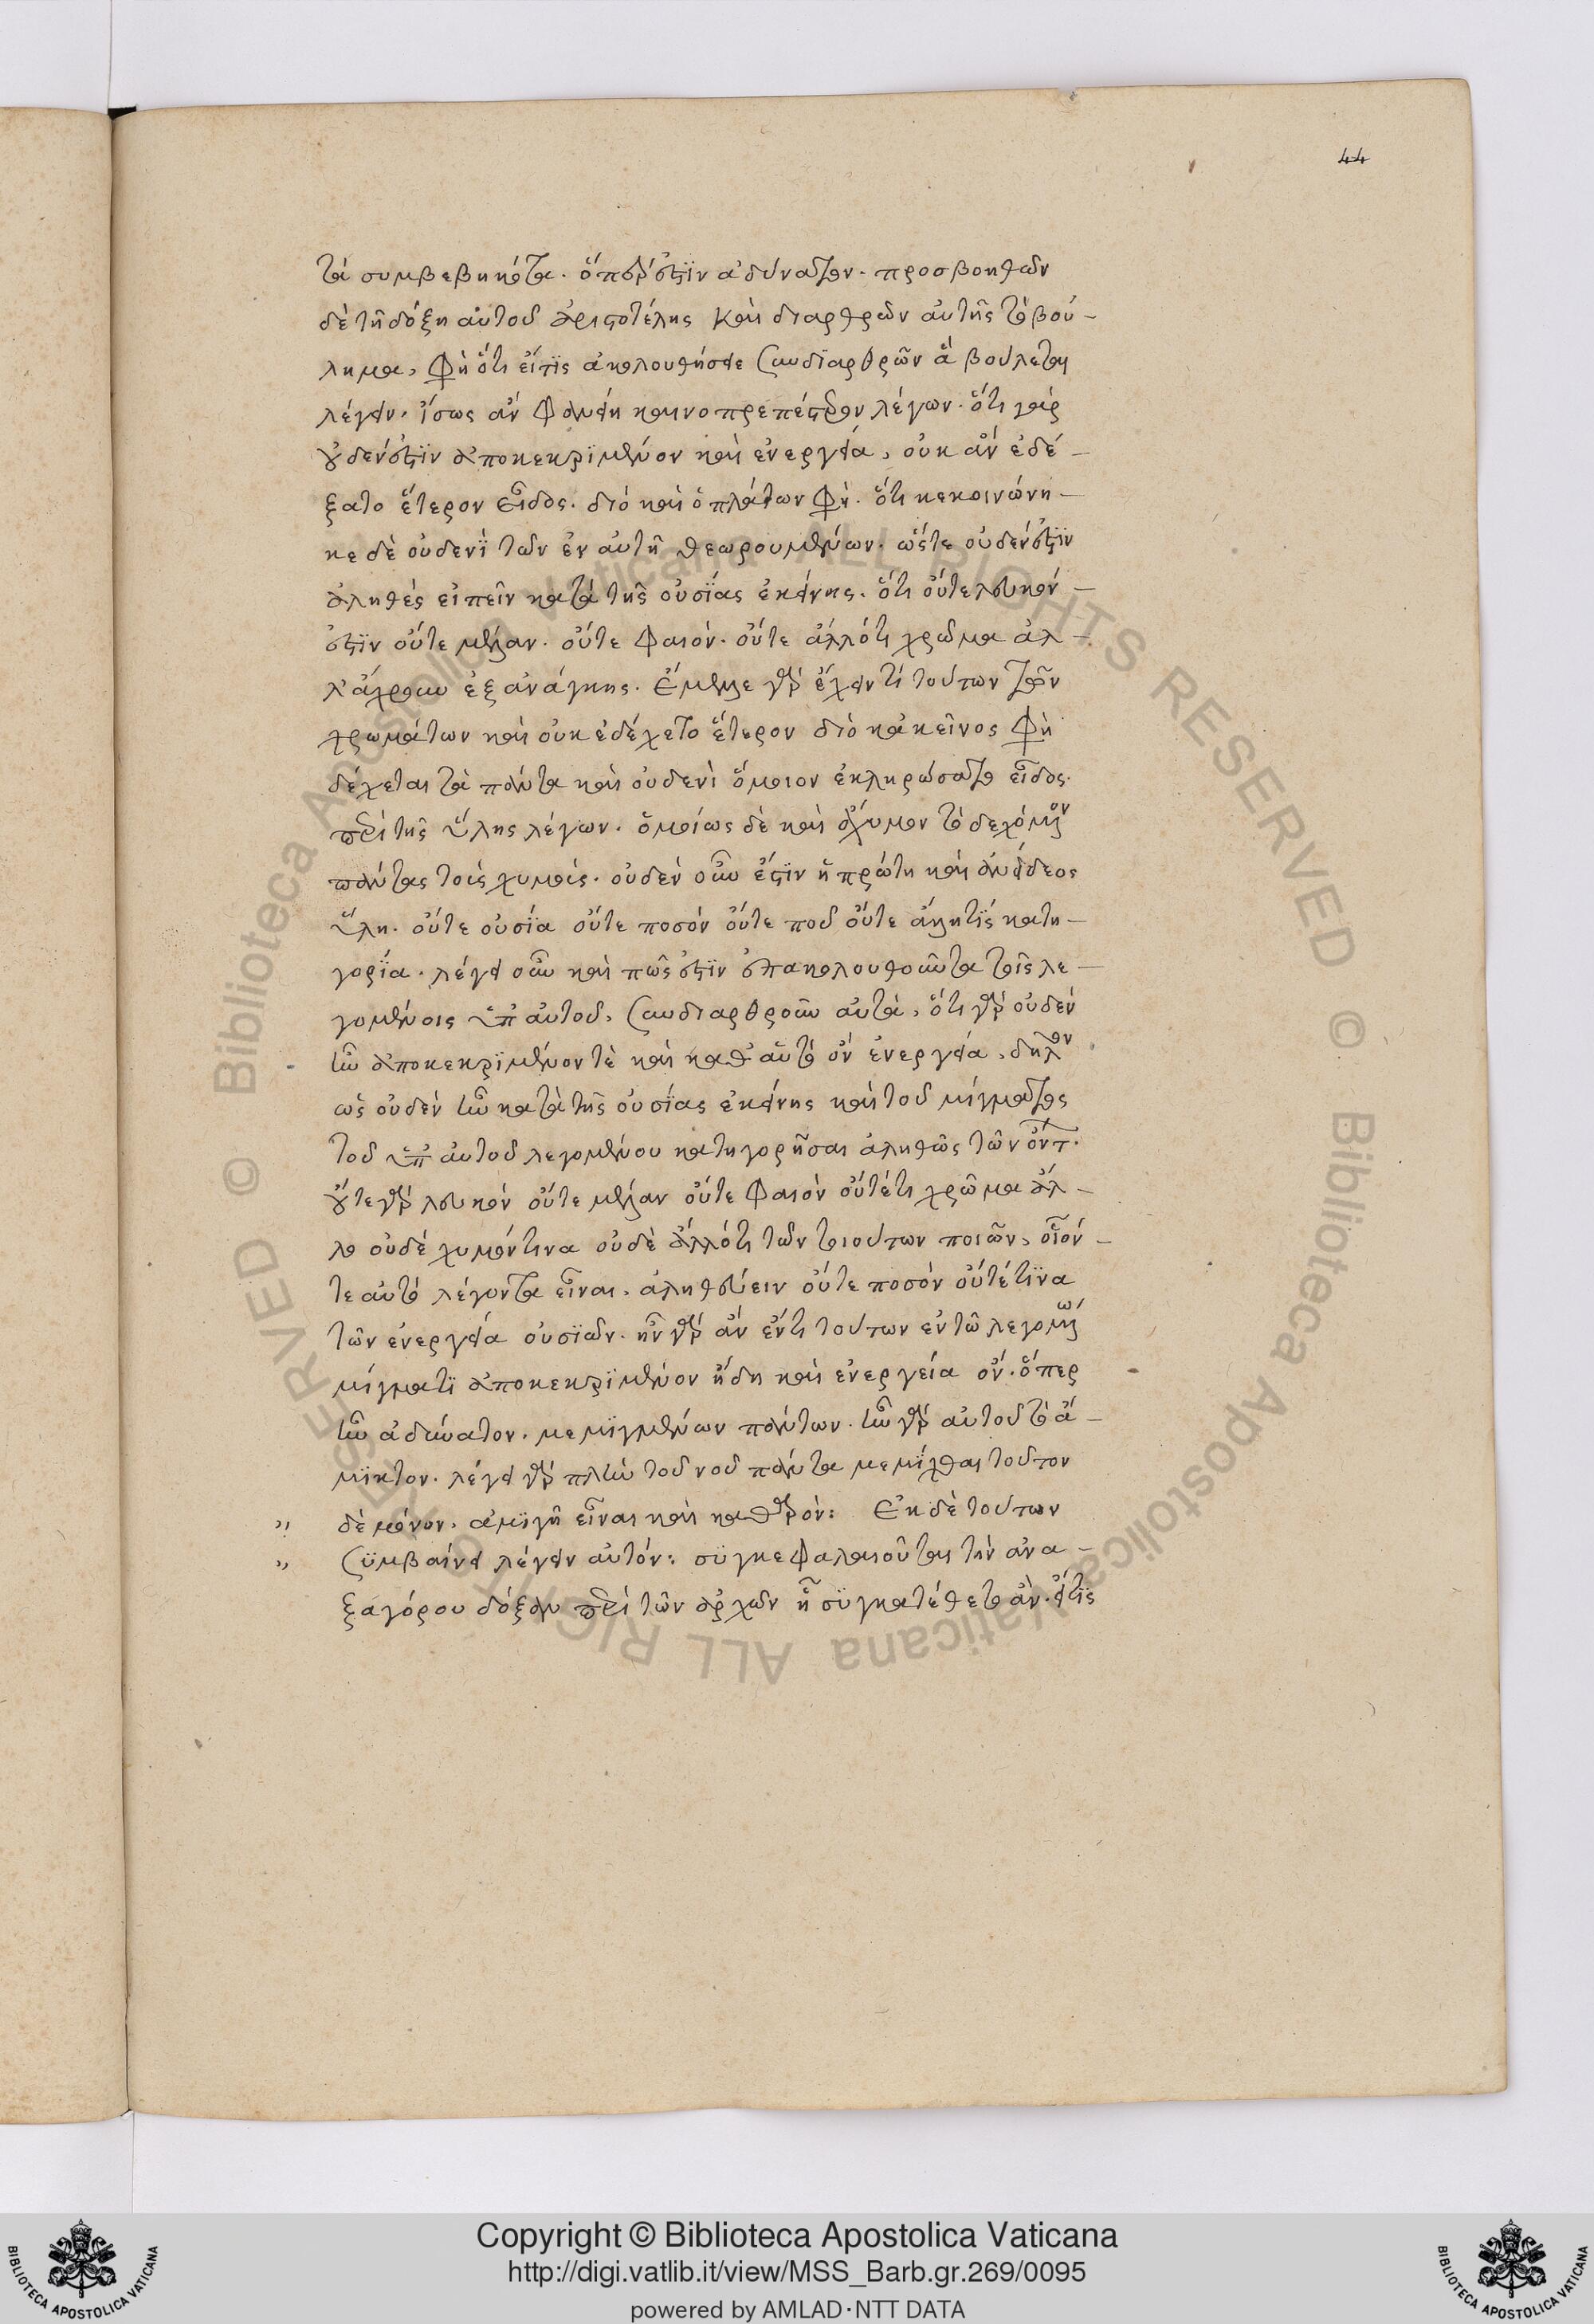 44
τὰ συμβεβηκότα. ὅπερ ἐστὶν ἀδύνατον. προσβοηθῶν
δὲ τῆ δόξη αὐτοῦ ἀριστοτέλης καὶ διαρθρῶν αὐτῆς τὸ βού-
λημα, φησὶ ὅτι εἴτις ἀκολουθήσειε συνδιαρθρῶν ἃ βούλεται
λέγειν. ἴσως ἂν φανείη καινοπρεπέστερον λέγων. ὅτι γὰρ
οὐδέν ἐστιν ἀποκεκριμένον καὶ ἐνεργεία, οὐκ ἂν ἐδέ-
ξατο ἕτερον εἶδος. διὸ καὶ ὁ πλάτων φησὶ. ὅτι κεκοινώνη-
κε δὲ οὐδενὶ τῶν ἐν αὐτῆ θεωρουμένων. ὥστε οὐδέν ἐστιν
ἀληθὲς εἰπεῖν κατὰ τῆς οὐσίας ἐκείνης. ὅτι οὔτε λευκόν
ἐστιν οὔτε μέλαν. οὔτε φαιόν. οὔτε ἀλλότι χρῶμα ἀλ-
λ' ἄχρουν ἐξανάγκης. ἔμελλε γὰρ ἔχειν τί τούτων τῶν
χρωμάτων καὶ οὐκ ἐδέχετο ἕτερον διὸ κἀκεῖνος φησὶ
δέχεται τὰ πάντα καὶ οὐδενὶ ὅμοιον ἐκληρώσατο εἶδος.
περὶ τῆς ὕλης λέγων. ὁμοίως δὲ καὶ ἄχυμον τὸ δεχόμενον
πάντας τοὺς χυμούς. οὐδὲν οὖν ἔστιν ἡ πρώτη καὶ ἀνείδεος
ὕλη. οὔτε οὐσία οὔτε ποσὸν οὔτε ποῦ οὔτε ἄλλητις κατη-
γορία. λέγει οὖν καὶ πῶς ἐστὶν ἐπακολουθοῦντα τοῖς λε-
γομένοις ὑπ' αὐτοῦ, συνδιαρθροῦν αὐτά, ὅτι γὰρ οὐδὲν
ἦν ἀποκεκριμένον τὲ καὶ καθ' αὑτὸ ὂν ἐνεργεία, δῆλον
ὡς οὐδὲν ἦν κατὰ τῆς οὐσίας ἐκείνης καὶ τοῦ μίγματος
τοῦ ὑπ' αὐτοῦ λεγομένου κατηγορῆσαι ἀληθῶς τῶν ὄντ.
οὔτε γὰρ λευκὸν οὔτε μέλαν οὔτε φαιὸν οὔτέτι χρῶμα ἄλ-
λο οὐδὲ χυμόντινα οὐδὲ ἀλλότι τῶν τοιούτων ποιῶν, οἷόν
τε αὐτὸ λέγοντα εἶναι, ἀληθεύειν οὔτε ποσὸν οὔτέτινα
τῶν ἐνεργεία οὐσιῶν. ἦν γὰρ ἂν ἔντι τούτων ἐν τῶ λεγομένω
μίγματι ἀποκεκριμένον ἤδη καὶ ἐνεργεία ὄν. ὅπερ
ἦν ἀδύνατον. μεμιγμένων πάντων. ἦν γὰρ αὐτοῦ τὸ ἄ-
μικτον. λέγει γὰρ πλὴν τοῦ νοῦ πάντα μεμίχθαι τοῦτον
δὲ μόνον. ἀμιγῆ εἶναι καὶ καθαρόν: Ἐκ δὲ τούτων
συμβαίνει λέγειν αὐτόν: συγκεφαλαιοῦται τὴν ἀνα-
ξαγόρου δόξαν περὶ τῶν ἀρχῶν ἧ συγκατέθετο ἄν. εἴτις
Copyright © Biblioteca Apostolica Vaticana
http://digi.vatlib.it/view/MSS_Barb.gr.269/0095
powered by AMLAD·NTT DATA